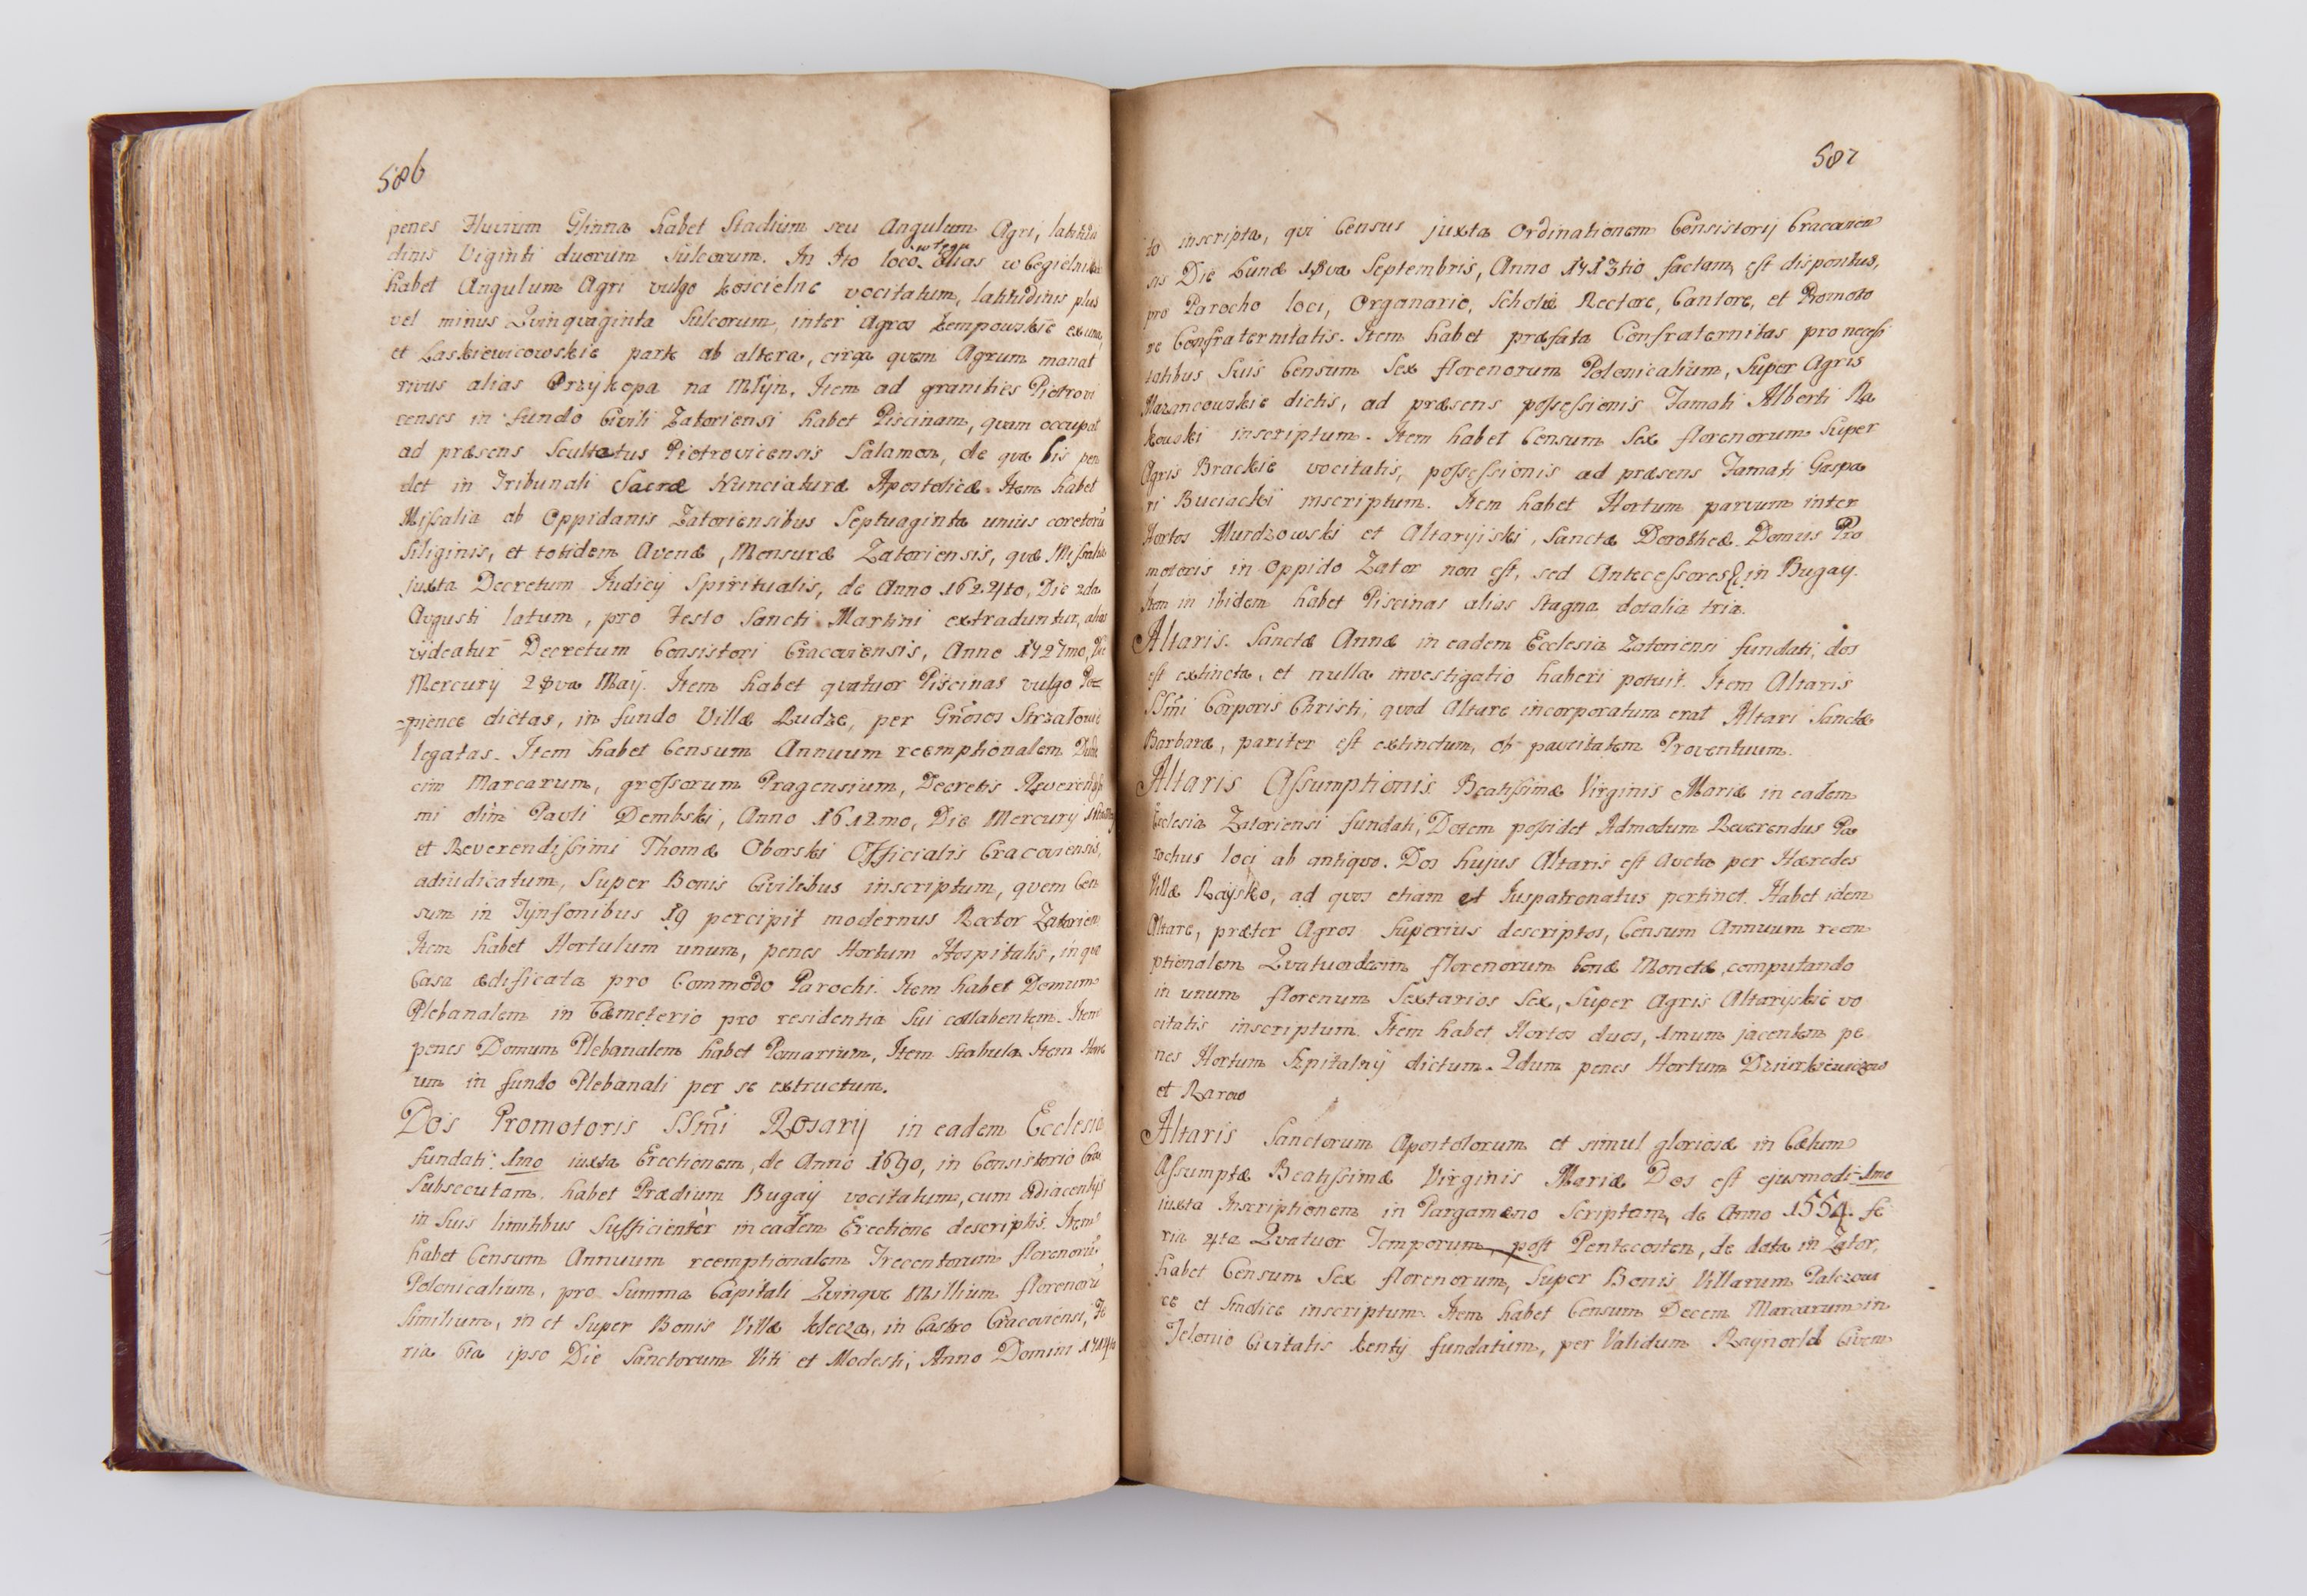 586
penes Fluvium Glinna habet Stadium seu Angulum Agri, latitu
dinis Viginti duorum Sulcorum. In Ito loco w łęgu alias w Cegielni
habet Angulum Agri vulgo koscielne vocitatum, latitudinis plus
vel minus Qvinqvaginta Sulcorum, inter Agros Kempowskie ex una,
et Laskiewicowskie parte ab altera, circa quem Agrum manat
rivus alias Przykopa na Młÿn. Item ad granities Piotrovi
censes in fundo Civili Zatoriensi habet Piscinam, quam occupat
ad præsens Scultetus Piotrovicensis Salamon, de qua lis pen
det in Tribunali Sacræ Nunciaturæ Apostolicæ. Item habet
Missalia ab Oppidanis Zatoriensibus Septuaginta unius coretorũ
Siliginis, et totidem Avenæ, Mensuræ Zatoriensis, quæ Missalia
juxta Decretum Iudicÿ Spiritualis, de Anno 1624to, Die 2da
Avgusti latum, pro festo Sancti Martini extraduntur, alias
videatur Decretum Consistori Cracoviensis, Anno 1727mo, Die
Mercurÿ 28va Maÿ. Item habet qvatuor Piscinas vulgo
dictas, in fundo Villæ Rudze, per Gñosos
legatas. Item habet Censum Annuum reemptionalem Duode
cim Marcarum, grossorum Pragensium, Decretis Reverendissi
mi olim Pavli Dembski, Anno 1612mo, Die Mercurÿ
et Reverendissimi Thomæ Oborski Officialis Cracoviensis,
adiudicatum, Super Bonis Civilibus inscriptum, quem Cen
sum in Tÿnfonibus 19 percipit modernus Rector Zatorien
Item habet Hortulum unum, penes Hortum Hospitalis, in quo
Casa ædificata pro Commodo Parochi. Item habet Domum
Plebanalem in Cæmeterio pro residentia Sui collabentem. Item
penes Domum Plebanalem habet Pomarium, Item Stabula Item Horre
um in fundo Plebanali per se extructum.
Dos Promotoris SSm̃i Rosarÿ in eadem Ecclesia
fundati: 1mo iuxta Erectionem, de Anno 1690, in Consistorio Cra
Subsecutam. habet Prædium Bugaÿ vocitatum, cum Adiacentÿs
in Suis limitibus Sufficientèr in eadem Erectione descriptis. Item
habet Censum Annuum reemptionalem Trecentorum florenorũ
Polonicalium, pro Summa Capitali Qvinqve Millium florenorũ
Similium, in et Super Bonis Villæ Klecza, in Castro Cracoviensi, Fe
ria 6ta ipso Die Sanctorum Viti et Modesti, Anno Domini
587
to inscripta, qvi Census juxta Ordinationem Consistorij Cracovien
sis Die Lunæ 18va Septembris, Anno 1713tio factam, est dispositus,
pro Parocho loci, Organario, Scholæ Rectore, Cantore, et Promoto
re Confraternitatis. Item habet præfata Confraternitas pro necessi
tatibus Suis Censum Sex florenorum Polonicalium, Super Agris
Mazancowskie dictis, ad præsens possessionis Famati Alberti Ra
kowski inscriptum. Item habet Censum Sex florenorum Super
Agris Brackie vocitatis, possessionis ad præsens Famati Gaspa
ri Buciacki inscriptum. Item habet Hortum parvum inter
Hortos Murdzowski et Altaryjski, Sanctæ Dorotheæ. Domus Pro
motoris in Oppido Zator non est, sed Antecessores in Bugaÿ.
Item in ibidem habet Piscinas alias Stagna dotalia tria.
Altaris. Sanctæ Annæ in eadem Ecclesia Zatoriensi fundati, dos
est extincta, et nulla investigatio haberi potuit. Item Altaris
SSm̃i Corporis Christi, quod Altare incorporatum erat Altari Sanctæ
Barbaræ, pariter est extinctum, ob pavcitatem Proventuum.
Altaris Assumptionis Beatissimæ Virginis Mariæ in eadem
Ecclesia Zatoriensi fundati, Dotem possidet Admodum Reverendus Pa
rochus loci ab antiqvo. Dos hujus Altaris est Avcta per Hæredes
Villæ Raÿsko, ad quos etiam et Iuspatronatus pertinet. Habet idem
Altare, præter Agros Superius descriptos, Censum Annuum reem
ptionalem Qvatuordecim florenorum bonæ Monetæ, computando
in unum florenum Sextarios Sex, Super Agris Altaryskie vo
citatis inscriptum. Item habet Hortos duos, Unum jacentem pe
nes Hortum Szpitalnÿ dictum. 2dum penes Hortum Dziurkiewiczow
et Rarow
Altaris Sanctorum Apostolorum et simul gloriosæ in Cælum
Assumptæ Beatissimæ Virginis Mariæ Dos est ejusmodi 1mo
iuxta Inscriptionem in Pargameno Scriptam, de Anno 1554. fe
ria 4ta Qvatuor Temporum, post Pentecosten, de data in Zator,
habet Censum Sex florenorum, Super Bonis Villarum Palczowi
ce et Smolice inscriptum. Item habet Censum Decem Marcarum in
Telonio Civitatis Kentÿ fundatum, per Validum Raynold Civem